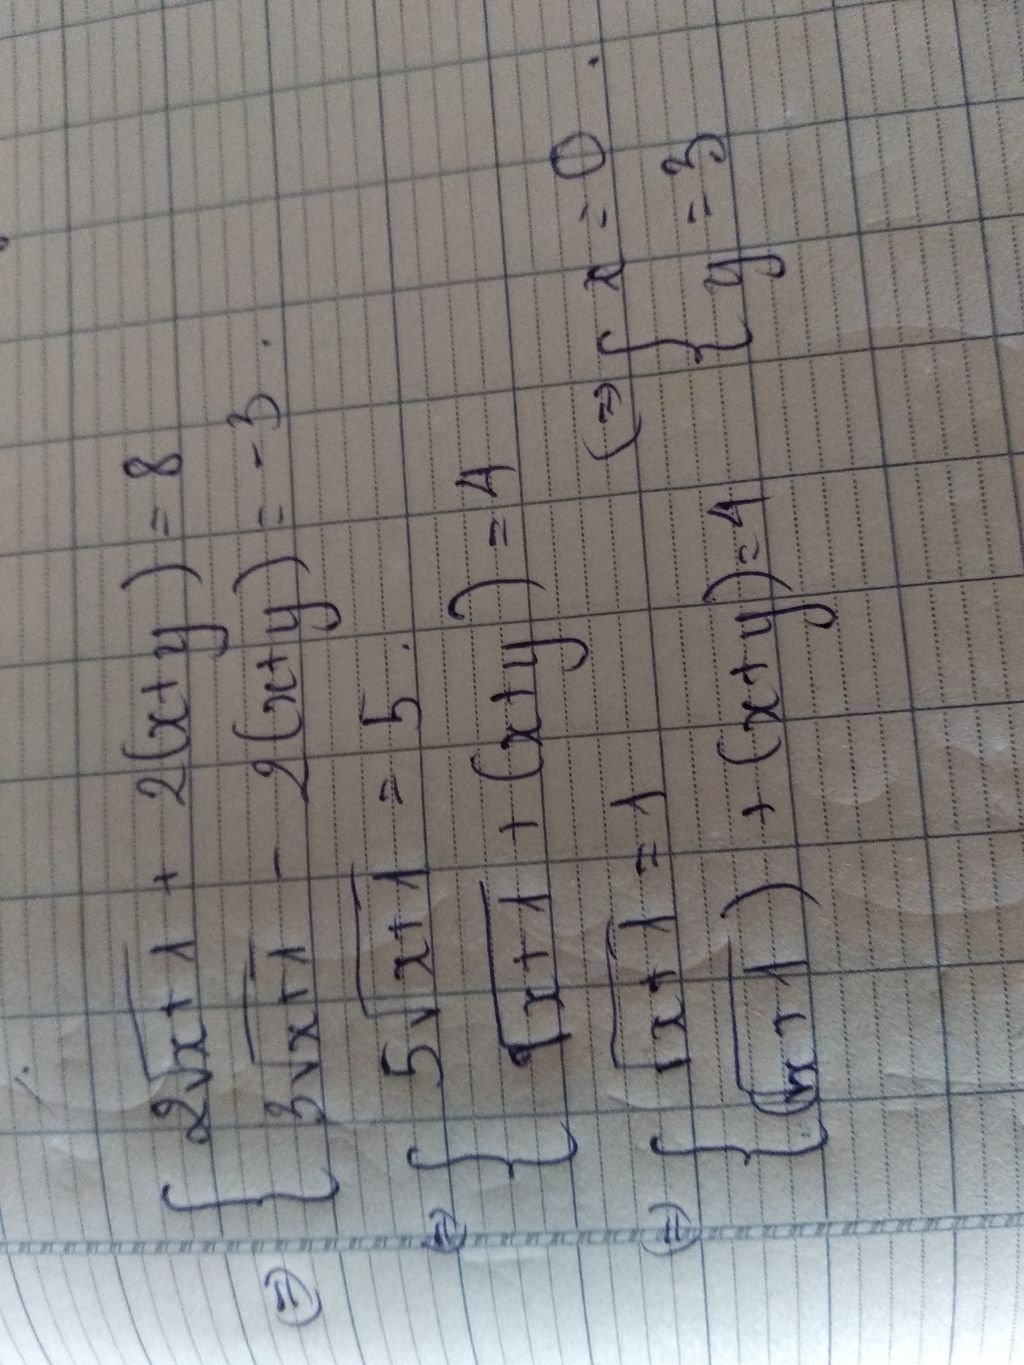 { 2√x+1 + 2(x+y) = 8
⇔ { 3√x+1 - 2(x+y) = -3.
{ 5√x+1 = 5.
⇔ { √x+1 + (x+y) = 4
{ √x+1 = 1 ⇔ { x = 0.
⇔ { (√x+1) + (x+y) = 4 { y = 3